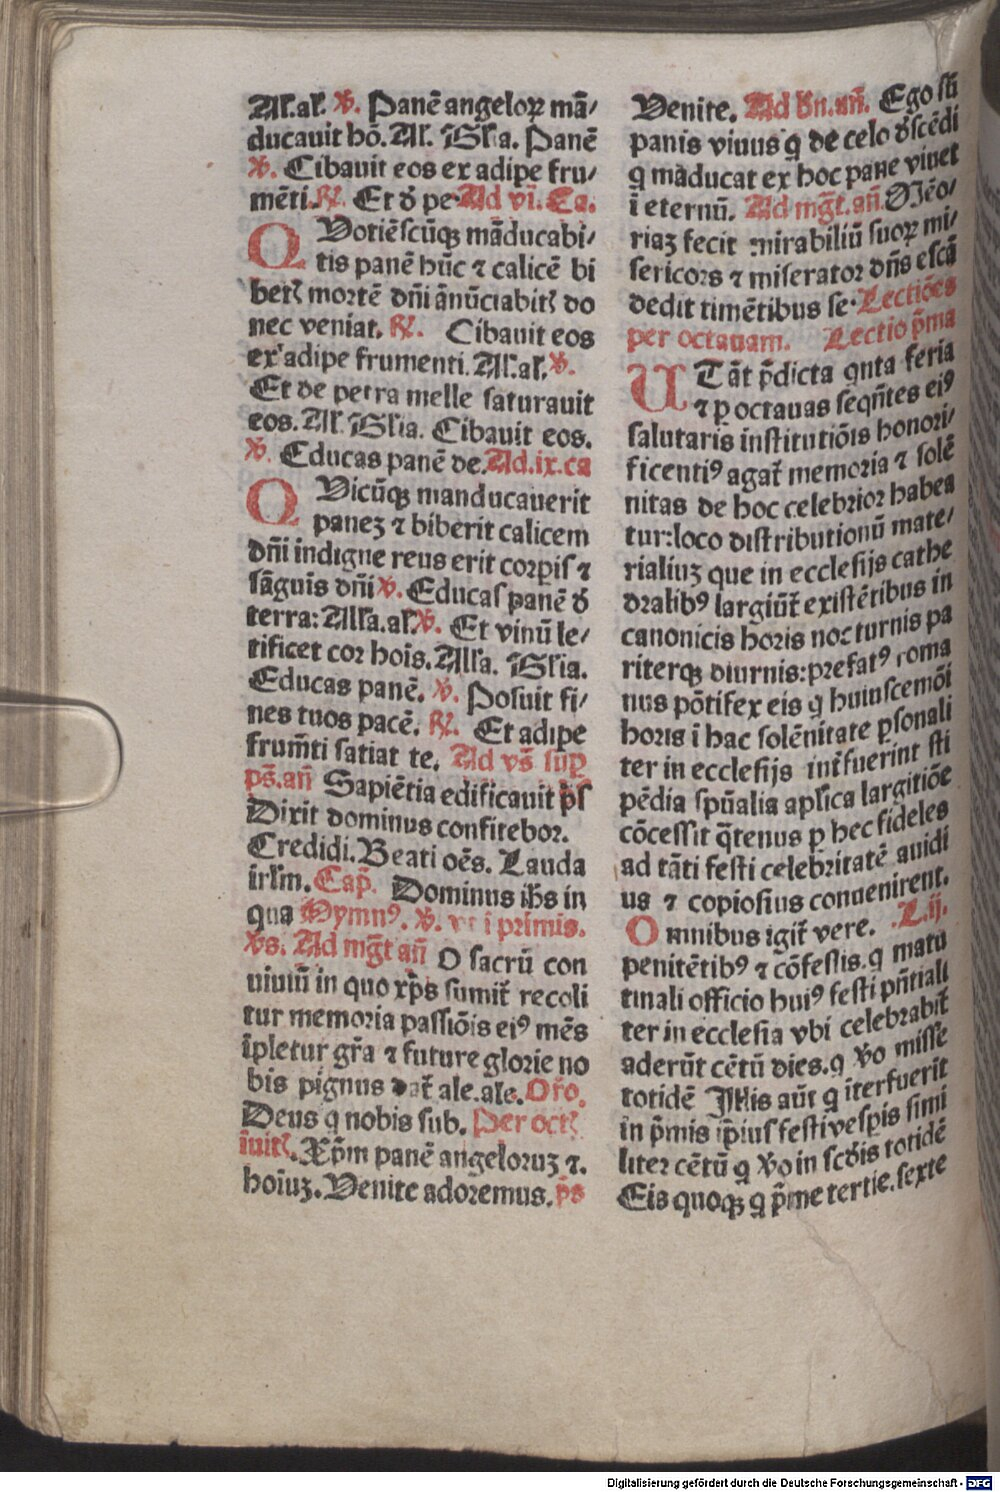 Al'.al'. ℣. Panē angeloꝝ mā⸗
ducauit hō. Al'. Gl'ia. Panē
℣. Cibauit eos ex adipe fru⸗
mēti. ℟. Et đ pe. Ad vi. Ca.
QUotiēſcūqꝫ māducabi⸗
tis panē hūc ⁊ calicē bi
betꝭ mortē dn̄i ānūciabitꝭ do
nec veniat. ℟. Cibauit eos
ex adipe frumenti. Al'.al'. ℣.
Et de petra melle ſaturauit
eos. Al'. Gl'ia. Cibauit eos.
℣. Educas panē de. Ad.ix.ca
QUicūqꝫ manducauerit
paneꝫ ⁊ biberit calicem
dn̄i indigne reus erit corꝑiſ ⁊
ſāguis dn̄i ℣. Educaſ panē đ
terra: All'a.al'. ℣. Et vinū le⸗
tificet cor hoīs. All'a. Gl'ia.
Educas panē. ℣. Poſuit fi⸗
nes tuos pacē. ℟. Et adipe
frum̄ti ſatiat te. Ad vs̄ ſuꝑ
ps̄. an̄ Sapiētia edificauit p̄s
Dixit dominus confitebor.
Credidi. Beati oēs. Lauda
irl'm. Cap̄. Dominus ih̄s in
qua Hymnꝰ. ℣. vt i primis.
℣s. Ad mḡt an̄ O ſacrū con
uiuiū in quo xp̄s ſumit̄ recoli
tur memoria paſſiōis eiꝰ mēs
īpletur gr̄a ⁊ future glorie no
bis pignus dat̄ ale.ale. Or̄o.
Deus q̄ nobis ſub. Per octꝭ
īuitꝭ. Xp̄m panē angeloruꝫ ⁊.
hoīuꝫ. Venite adoremus. p̄s
Venite. Ad bn̄. an̄. Ego ſū
panis viuus q̄ de celo đſcēdi
q̄ māducat ex hoc pane viuet
ī eternū. Ad mḡt. an̄. Mēo⸗
riaꝫ fecit mirabiliū ſuoꝝ mi⸗
ſericors ⁊ miſerator dn̄s eſcā
dedit timētibus ſe. Lectiōes
per octauam. Lectio p̄ma
UT āt p̄dicta qnta feria
⁊ ꝑ octauas ſeqn̄tes eiꝰ
ſalutaris inſtitutiōis honori⸗
ficentiꝰ agat̄ memoria ⁊ ſolē
nitas de hoc celebrior habea
tur: loco diſtributionū mate⸗
rialiuꝫ que in eccleſijs cathe
dralibꝰ largiūt̄ exiſtētibus in
canonicis horis nocturnis pa
riterqꝫ diurnis: prefatꝰ roma
nus pōtifex eis q̄ huiuſcemōi
horis ī hac ſolēnitate ꝑſonali
ter in eccleſijs int̄fuerint ſti
pēdia ſpūalia apl'ica largitiōe
cōceſſit q̄tenus ꝑ hec fideles
ad tāti feſti celebritatē auidi
us ⁊ copioſius conuenirent.
Omnibus igit̄ vere. L.ij.
penitētibꝰ ⁊ cōfeſſis. q̄ matu
tinali officio huiꝰ feſti pn̄tiali
ter in eccleſia vbi celebrabit̄
aderūt cētū dies. q̄ ꝟo miſſe
totidē Illis aūt q̄ īterfuerit
in p̄mis ip̄iuſ feſti veſꝑis ſimi
liter cētū q̄ ꝟo in ſcđis totidē
Eis quoqꝫ q̄ p̄me tertie. ſexte
Digitalisierung gefördert durch die Deutsche Forschungsgemeinschaft - DFG